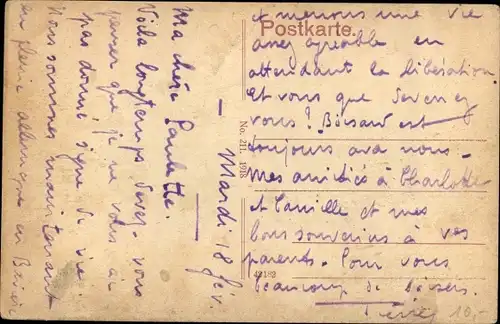 Mardi 18 fév.
Ma chère Paulette.
Voilà longtemps savez-vous
penser que je ne vous ai
pas donné signe de vie.
Nous sommes maintenant
en pleine Allemagne en Bavière
et menons une vie
assez agréable en
attendant la libération.
Et vous que devenez
vous? Boisard est
toujours avec nous.
Mes amitiés à Charlotte
et Camille et mes
bons souvenirs à vos
parents. Pour vous
beaucoup de baisers.
Pierre
10,-
Postkarte.
No. 211. 1918
42182